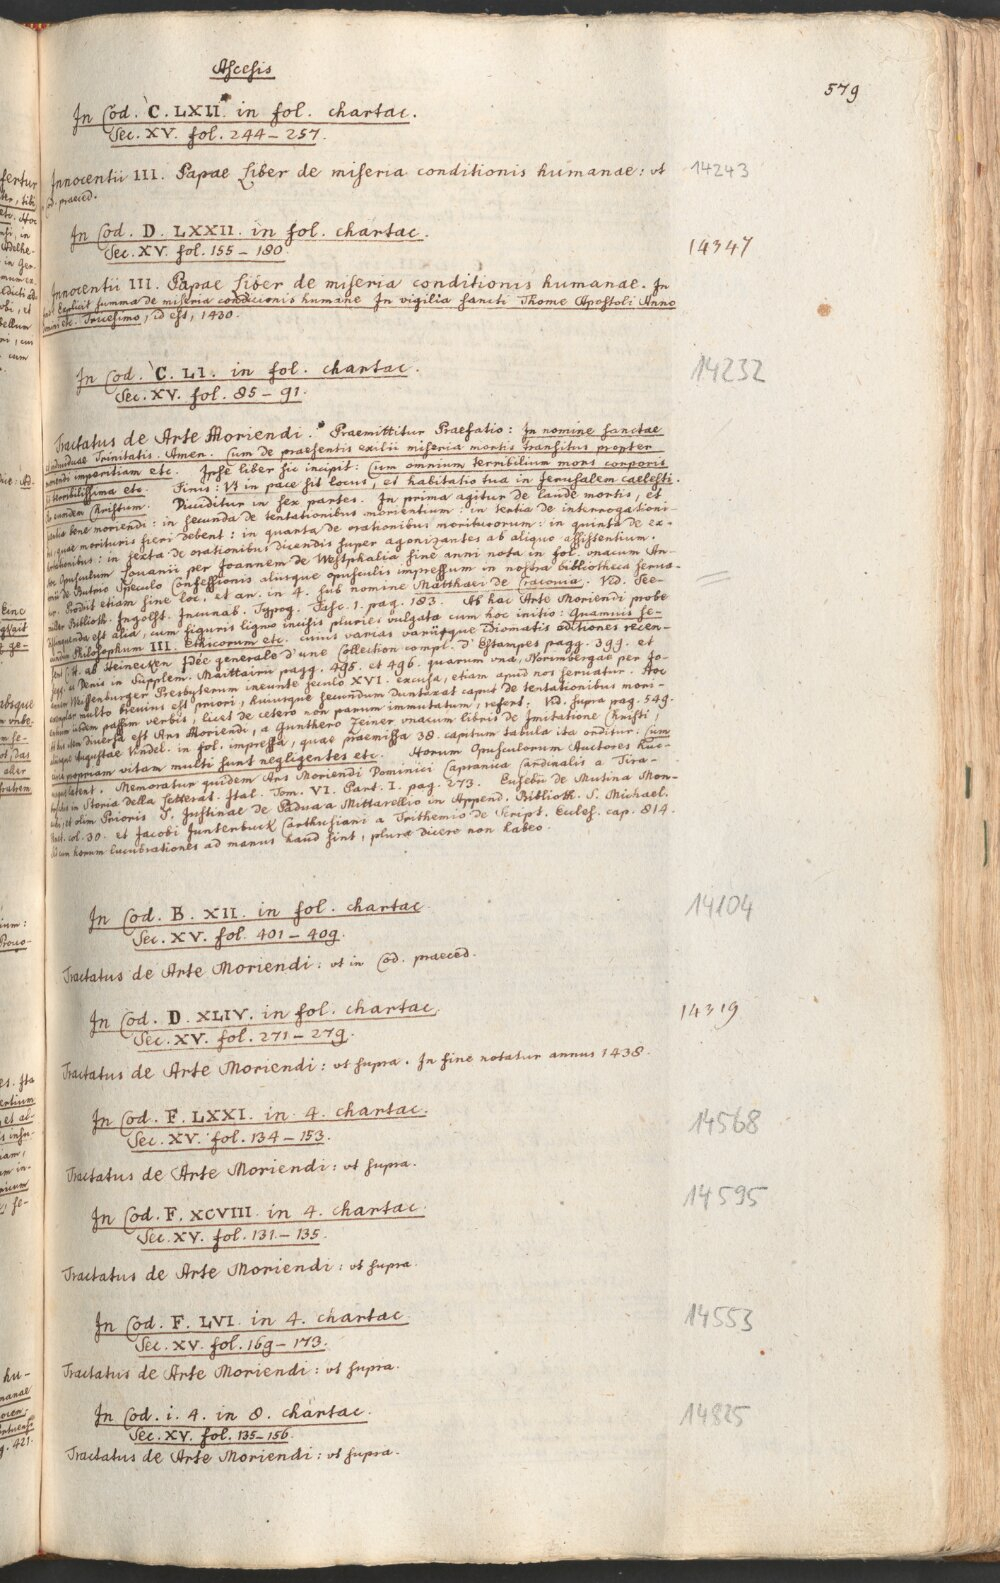 Ascesis
579
In Cod. C. LXII. in fol. chartac.
Sec. XV. fol. 244-257.
Innocentii III. Papae Liber de miseria conditionis humanae: ut
14243
praeced.
In Cod. D. LXXII. in fol. chartac.
Sec. XV. fol. 155-180.
14347
Innocentii III. Papae Liber de miseria conditionis humanae. In
Explicit summa de miseria condicionis humane In vigilia sancti Thome Apostoli Anno
etc. Tricesimo, id est, 1430.
In Cod. C. LI. in fol. chartac.
Sec. XV. fol. 85-91.
14232
Tractatus de Arte Moriendi. Praemittitur Praefatio: In nomine sanctae
individuae Trinitatis. Amen. Cum de praesentis exilii miseria mortis transitus propter
moriendi imperitiam etc. Ipse liber sic incipit: Cum omnium terribilium mors corporis
terribilissima etc. Finis: Ut in pace sit locus, et habitatio tua in Jerusalem caelesti.
Per eundem Christum. Dividitur in sex partes. In prima agitur de laude mortis, et
bene moriendi: in secunda de tentationibus morientium: in tertia de interrogationi-
quae morituris fieri debent: in quarta de orationibus moribundorum: in quinta de ex-
hortationibus: in sexta de orationibus dicendis super agonizantes ab aliquo assistentium.
Hoc Opusculum Lovanii per Joannem de Westphalia sine anni nota in fol. vnacum An-
de Butrio Speculo Confessionis aliisque opusculis impressum in nostra bibliotheca serua-
tur. Prodiit etiam sine loc. et an. in 4. sub nomine Matthaei de Cracovia. Vid. See-
miller Biblioth. Ingolst. Incunab. Typog. Fasc. 1. pag. 183. Ab hac Arte Moriendi probe
distinguenda est alia, cum figuris ligno incisis pluries vulgata cum hoc initio: Quamuis se-
cundum Philosophum III. Ethicorum etc. cuius varias variisque Idiomatis editiones recen-
sent C. H. ab Heinecken Idée generale d'une Collection compl. d'Estampes pagg. 399. et
Denis in Supplem. Maittairii pagg. 495. et 496. quarum vna, Norimbergae per Jo-
annem Weissenburger Presbyterum ineunte seculo XVI. excusa, etiam apud nos seruatur. Hoc
exemplar multo breuius est priori, huiusque secundum duntaxat caput de tentationibus mori-
entium iisdem passim verbis, licet de cetero non parum immutatum, refert. Vid. supra pag. 549.
diversa est Ars Moriendi, a Gunthero Zeiner vnacum libris de Imitatione Christi,
aliisque Augustae Vindel. in fol. impressa, quae praemissa 38. capitum tabula ita orditur: Cum
propriam vitam multi sunt negligentes etc. Horum Opusculorum Auctores huc-
latent. Memoratur quidem Ars Moriendi Dominici Capranica Cardinalis a Tira-
in Storia della Letterat. Ital. Tom. VI. Part. I. pag. 273. Eusebii de Mutina Mon-
et olim Prioris S. Justinae de Padua a Mittarellio in Append. Biblioth. S. Michael.
col. 30. et Jacobi Junterbuck Carthusiani a Trithemio de Script. Eccles. cap. 814.
cum horum lucubrationes ad manus haud sint, plura dicere non habeo.
In Cod. B. XII. in fol. chartac.
Sec. XV. fol. 401-409.
14104
Tractatus de Arte Moriendi: ut in Cod. praeced.
In Cod. D. XLIV. in fol. chartac.
Sec. XV. fol. 271-279.
14319
Tractatus de Arte Moriendi: ut supra. In fine notatur annus 1438.
In Cod. F. LXXI. in 4. chartac.
Sec. XV. fol. 134-153.
14568
Tractatus de Arte Moriendi: ut supra.
In Cod. F. XCVIII. in 4. chartac.
Sec. XV. fol. 131-135.
14595
Tractatus de Arte Moriendi: ut supra.
In Cod. F. LVI. in 4. chartac.
Sec. XV. fol. 169-173.
14553
Tractatus de Arte Moriendi: ut supra.
In Cod. i. 4. in 8. chartac.
Sec. XV. fol. 135-156.
14825
Tractatus de Arte Moriendi: ut supra.